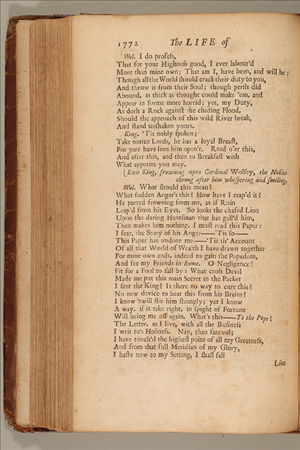 1772 The LIFE of
Wol. I do profess,
That for your Highness good, I ever labour'd
More than mine own; That am I, have been, and will be:
Though all the World should crack their duty to you,
And throw it from their Soul; though perils did
Abound, as thick as thought could make 'em, and
Appear in forms more horrid; yet, my Duty,
As doth a Rock against the chiding Flood,
Should the approach of this wild River break,
And stand unshaken yours.
King. 'Tis nobly spoken;
Take notice Lords, he has a loyal Breast,
For you have seen him open't. Read o'er this,
And after this, and then to Breakfast with
What appetite you may.
[Exit King, frowning upon Cardinal Wolsey, the Nobles
throng after him whispering and smiling.
Wol. What should this mean?
What sudden Anger's this? How have I reap'd it?
He parted frowning from me, as if Ruin
Leap'd from his Eyes. So looks the chafed Lion
Upon the daring Huntsman that has gall'd him,
Then makes him nothing. I must read this Paper:
I fear, the Story of his Anger——'Tis so——
This Paper has undone me——'Tis th' Account
Of all that World of Wealth I have drawn together
For mine own ends, indeed to gain the Popedom,
And fee my Friends in Rome. O Negligence!
Fit for a Fool to fall by: What cross Devil
Made me put this main Secret in the Packet
I sent the King? Is there no way to cure this?
No new device to beat this from his Brains?
I know 'twill stir him strongly; yet I know
A way, if it take right, in spight of Fortune
Will bring me off again. What's this——To the Pope?
The Letter, as I live, with all the Business
I writ to's Holiness. Nay, then farewel;
I have touch'd the highest point of all my Greatness,
And from that full Meridian of my Glory,
I haste now to my Setting. I shall fall
Like